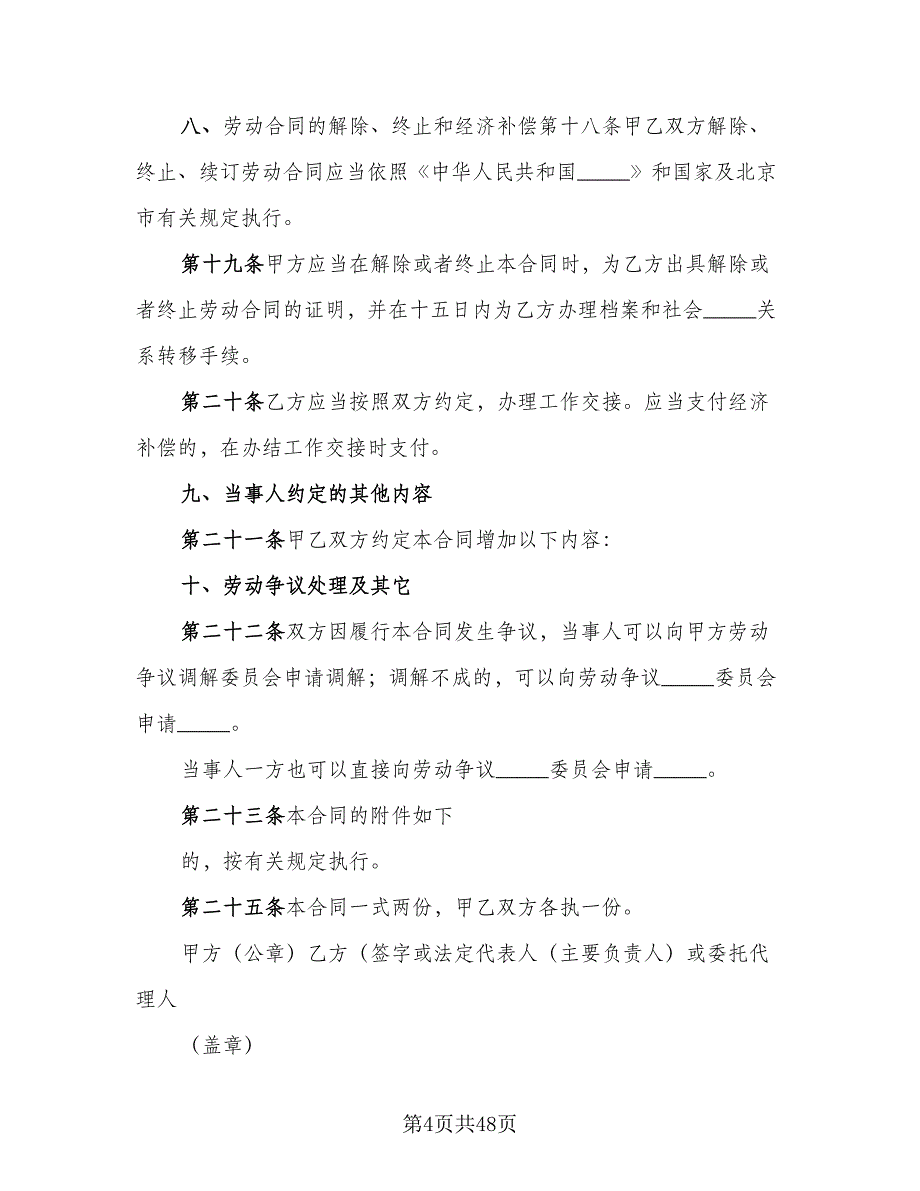 八、劳动合同的解除、终止和经济补偿第十八条甲乙双方解除、
终止、续订劳动合同应当依照《中华人民共和国_____》和国家及北京
市有关规定执行。
第十九条甲方应当在解除或者终止本合同时，为乙方出具解除或
者终止劳动合同的证明，并在十五日内为乙方办理档案和社会_____关
系转移手续。
第二十条乙方应当按照双方约定，办理工作交接。应当支付经济
补偿的，在办结工作交接时支付。
九、当事人约定的其他内容
第二十一条甲乙双方约定本合同增加以下内容：
十、劳动争议处理及其它
第二十二条双方因履行本合同发生争议，当事人可以向甲方劳动
争议调解委员会申请调解；调解不成的，可以向劳动争议_____委员会
申请_____。
当事人一方也可以直接向劳动争议_____委员会申请_____。
第二十三条本合同的附件如下
的，按有关规定执行。
第二十五条本合同一式两份，甲乙双方各执一份。
甲方（公章）乙方（签字或法定代表人（主要负责人）或委托代
理人
（盖章）
第4页共48页